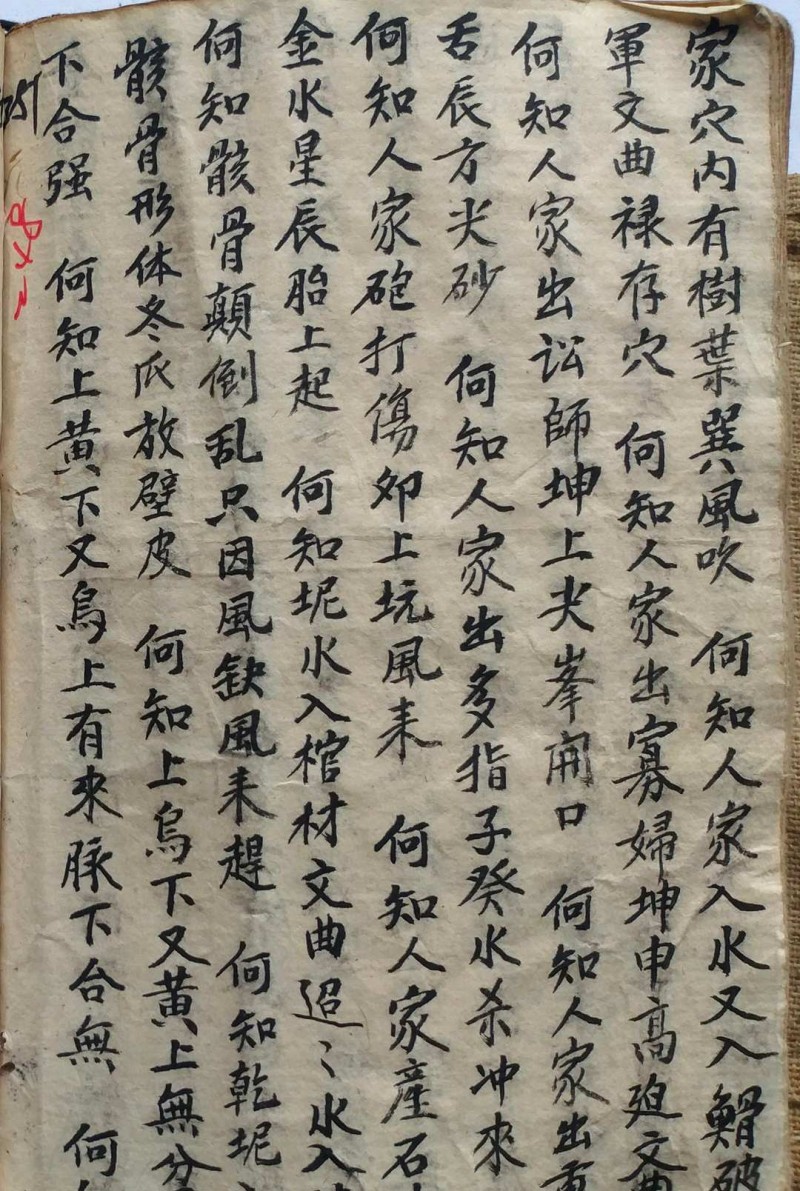 家穴内有樹葉巽風吹 何知人家入水又入 破
軍文曲禄存穴 何知人家出寡婦坤申高迫文曲
何知人家出訟師坤上尖峯開口 何知人家出
舌辰方尖砂 何知人家出多指子癸水杀冲來
何知人家砲打傷卯上坑風来 何知人家產石
金水星辰胎上起 何知坭水入棺材文曲迢〻水入
何知骸骨顛倒乱只因風缺風来趕 何知乾坭
骸骨形体冬瓜放壁皮 何知上烏下又黄上無分
下合强 何知上黄下又烏上有來脉下合無 何